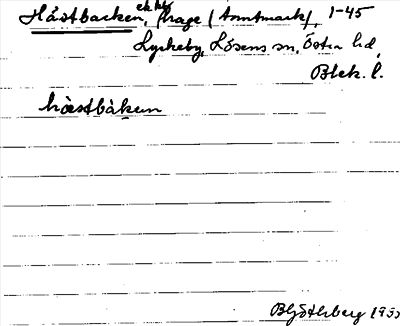 Hästbacken, hage (tomtmark), 1-45
Lyckeby, Lösens sn, Östra hd,
Blek. l.
hæ̀stbàkən
B Götlberg 1935